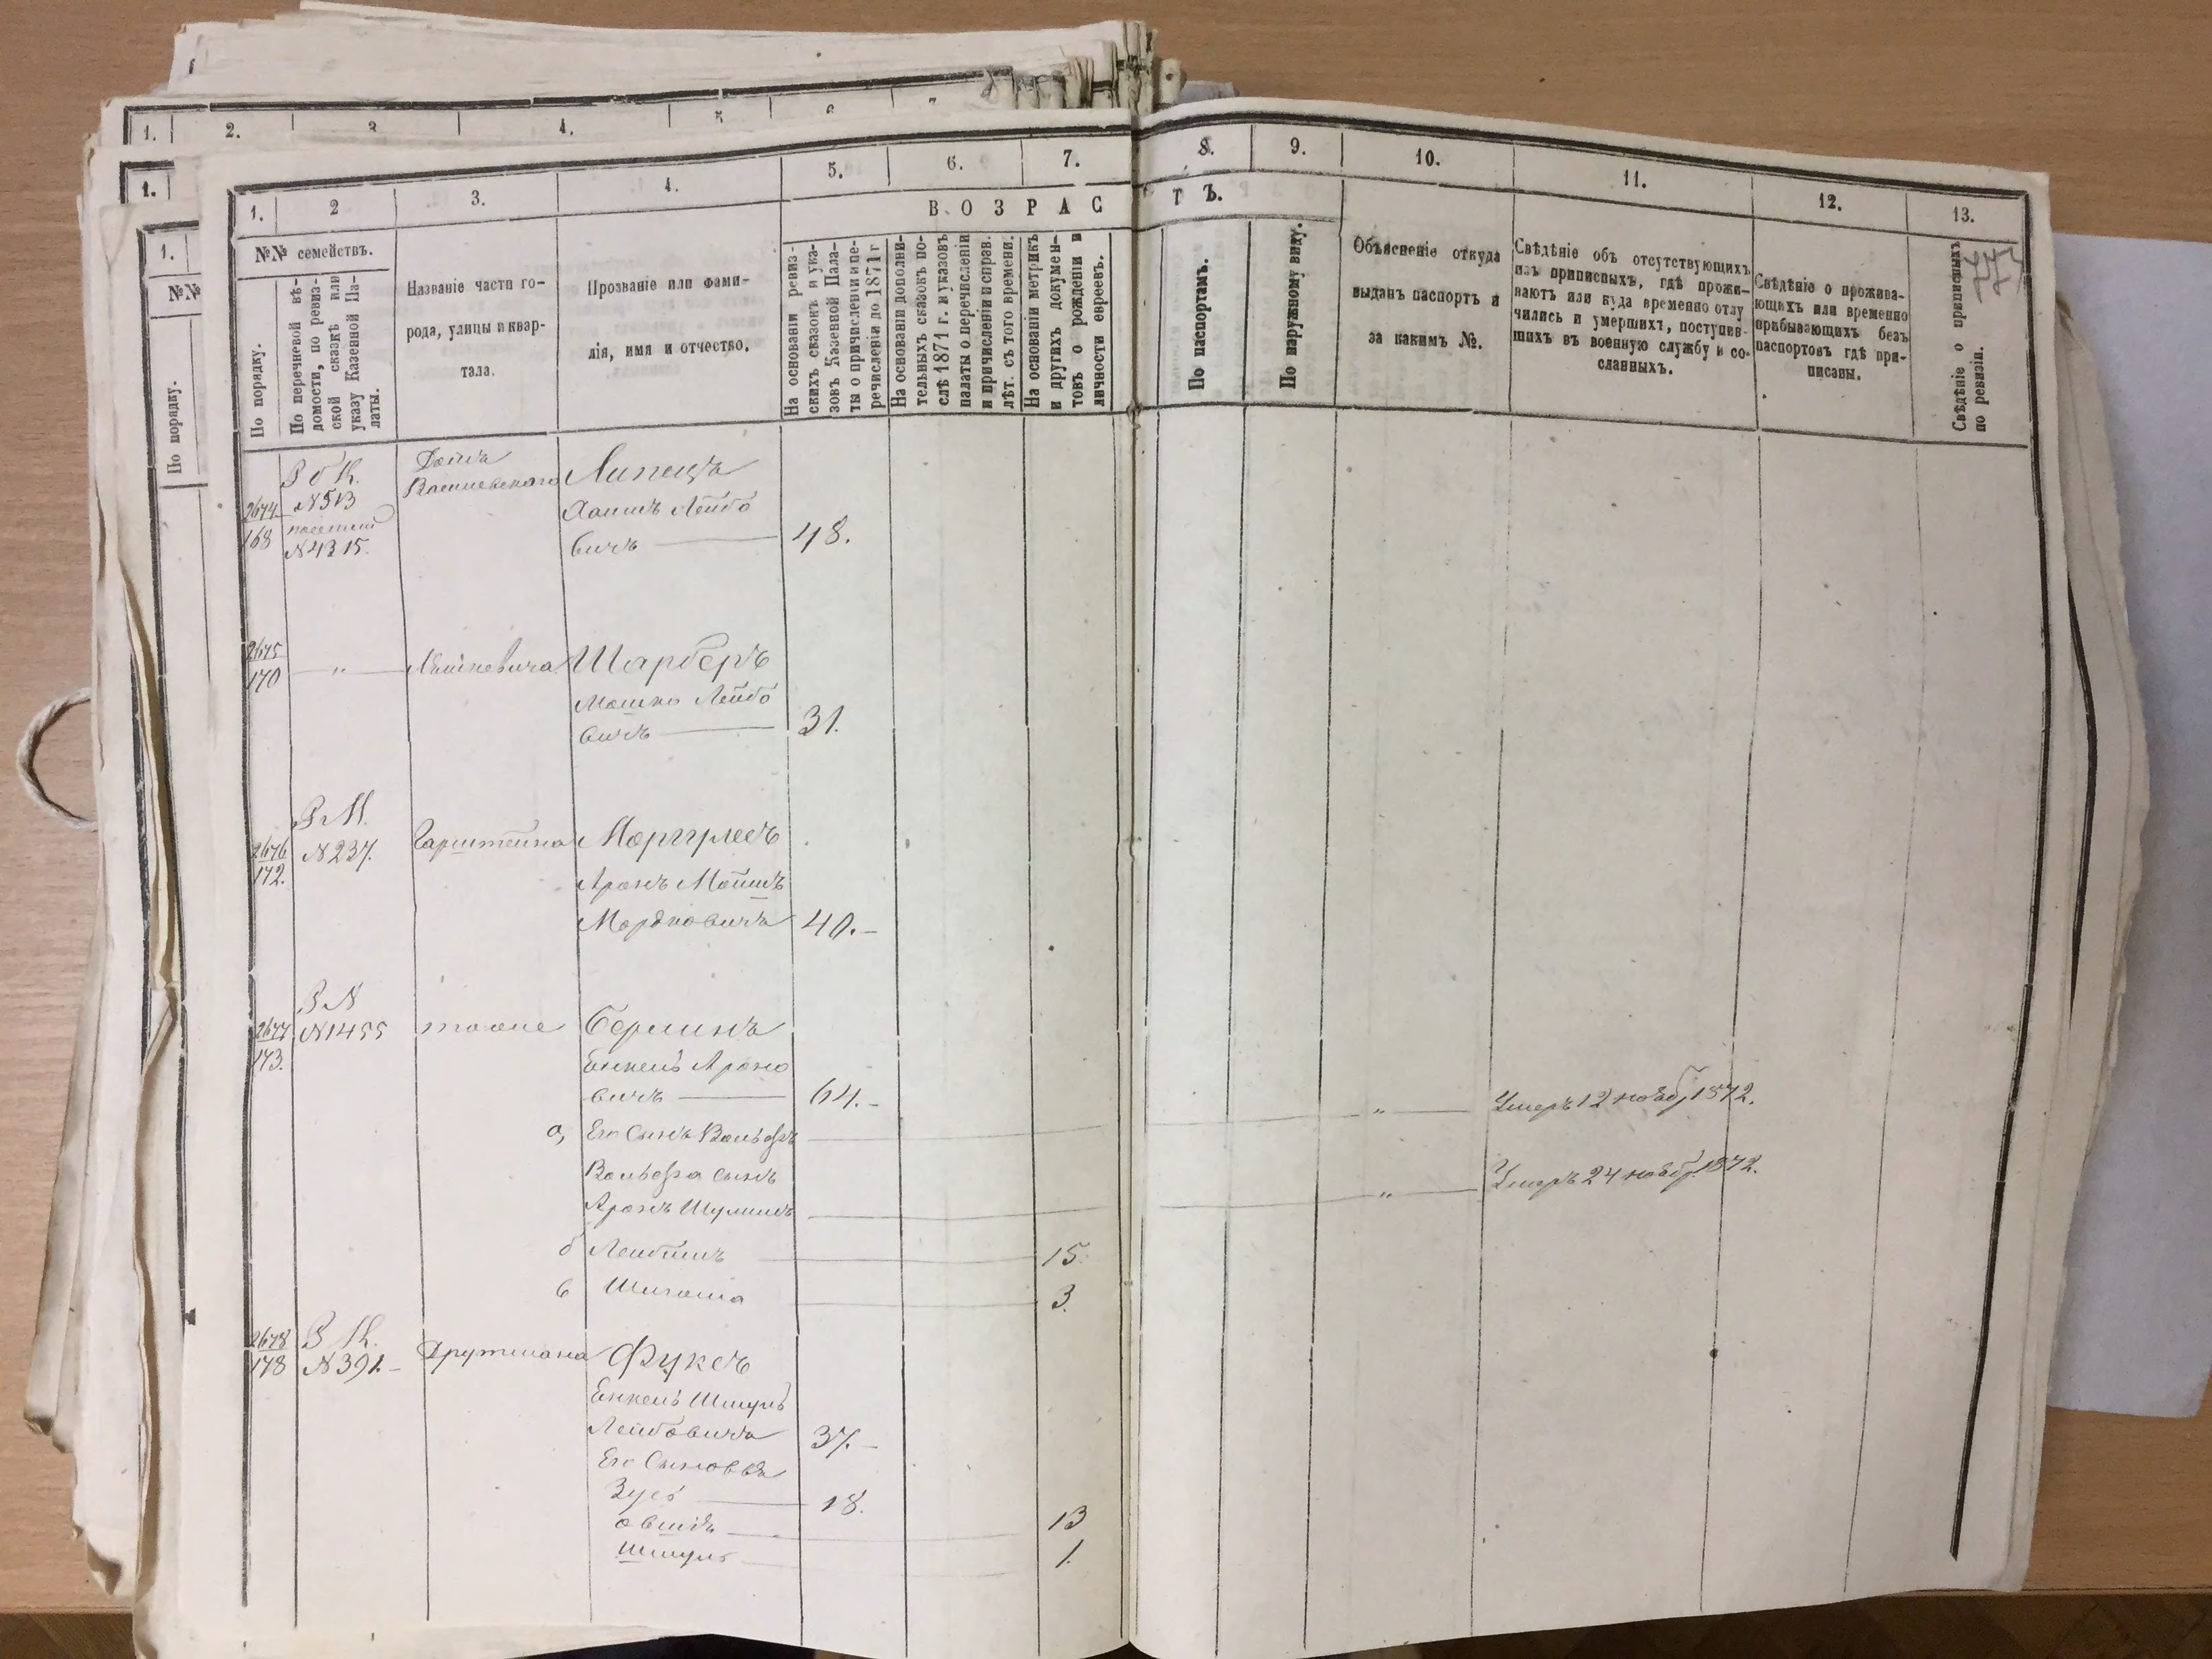 1. 2. 3 4. 5 6 7
1.
1.
№№
По порядку.
1. 2 3. 4. 5. 6. 7. 8. 9. 10. 11. 12. 13.
ВОЗРАСТЪ.
№№ семействъ.
По порядку.
По перечневой вѣ-
домости, по ревиз-
ской сказкѣ или
указу Казенной Па-
латы.
Названіе части го-
рода, улицы и квар-
тала.
Прозваніе или фами-
лія, имя и отчество.
На основаніи ревиз-
скихъ сказокъ и ука-
зовъ Казенной Пала-
ты о причисленіи и пе-
речисленіи до 1871 г
На основаніи дополни-
тельныхъ сказокъ по-
слѣ 1871 г. и указовъ
палаты о перечисленіи
и причисленіи и справ.
лѣт. съ того времени.
На основаніи метрикъ
и другихъ докумен-
товъ о рожденіи и
личности евреевъ.
По паспортамъ.
По наружному виду.
Объясненіе откуда
выданъ паспортъ и
за какимъ №.
Свѣдѣніе объ отсутствующихъ
изъ приписныхъ, гдѣ прожи-
ваютъ или куда временно отлу
чились и умершихъ, поступив-
шихъ въ военную службу и со-
сланныхъ.
Свѣдѣніе о прожива-
ющихъ или временно
прибывающихъ безъ
паспортовъ гдѣ при-
писаны.
Свѣдѣніе о приписныхъ
по ревизіи.
Дома
Липецъ
N513
2674
168
N4315.
Хаимъ Лейбо
вичъ 48.
2675
170 " Шарберъ
Мошко Лейбо
вичъ 31.
2676
172. N237. Гарштейна
Аронъ Мойше
Мордковичъ 40.-
2677
173. N1455 тоже Берманъ
Енкель Ароно
вичъ 64.-
а, Его Сынъ Вольфъ " Умеръ 12 ноябр 1872.
Вольфа сынъ
Аронъ Шулимъ " Умеръ 24 ноябр. 1872.
б 15.
в 3.
2678
178 N391.- Друтмана Фуксъ
Енкель Шмуль
Лейбовичъ 37.-
Его Сыновья
Зусь 18.
Овшій 13
Шмуль 1.